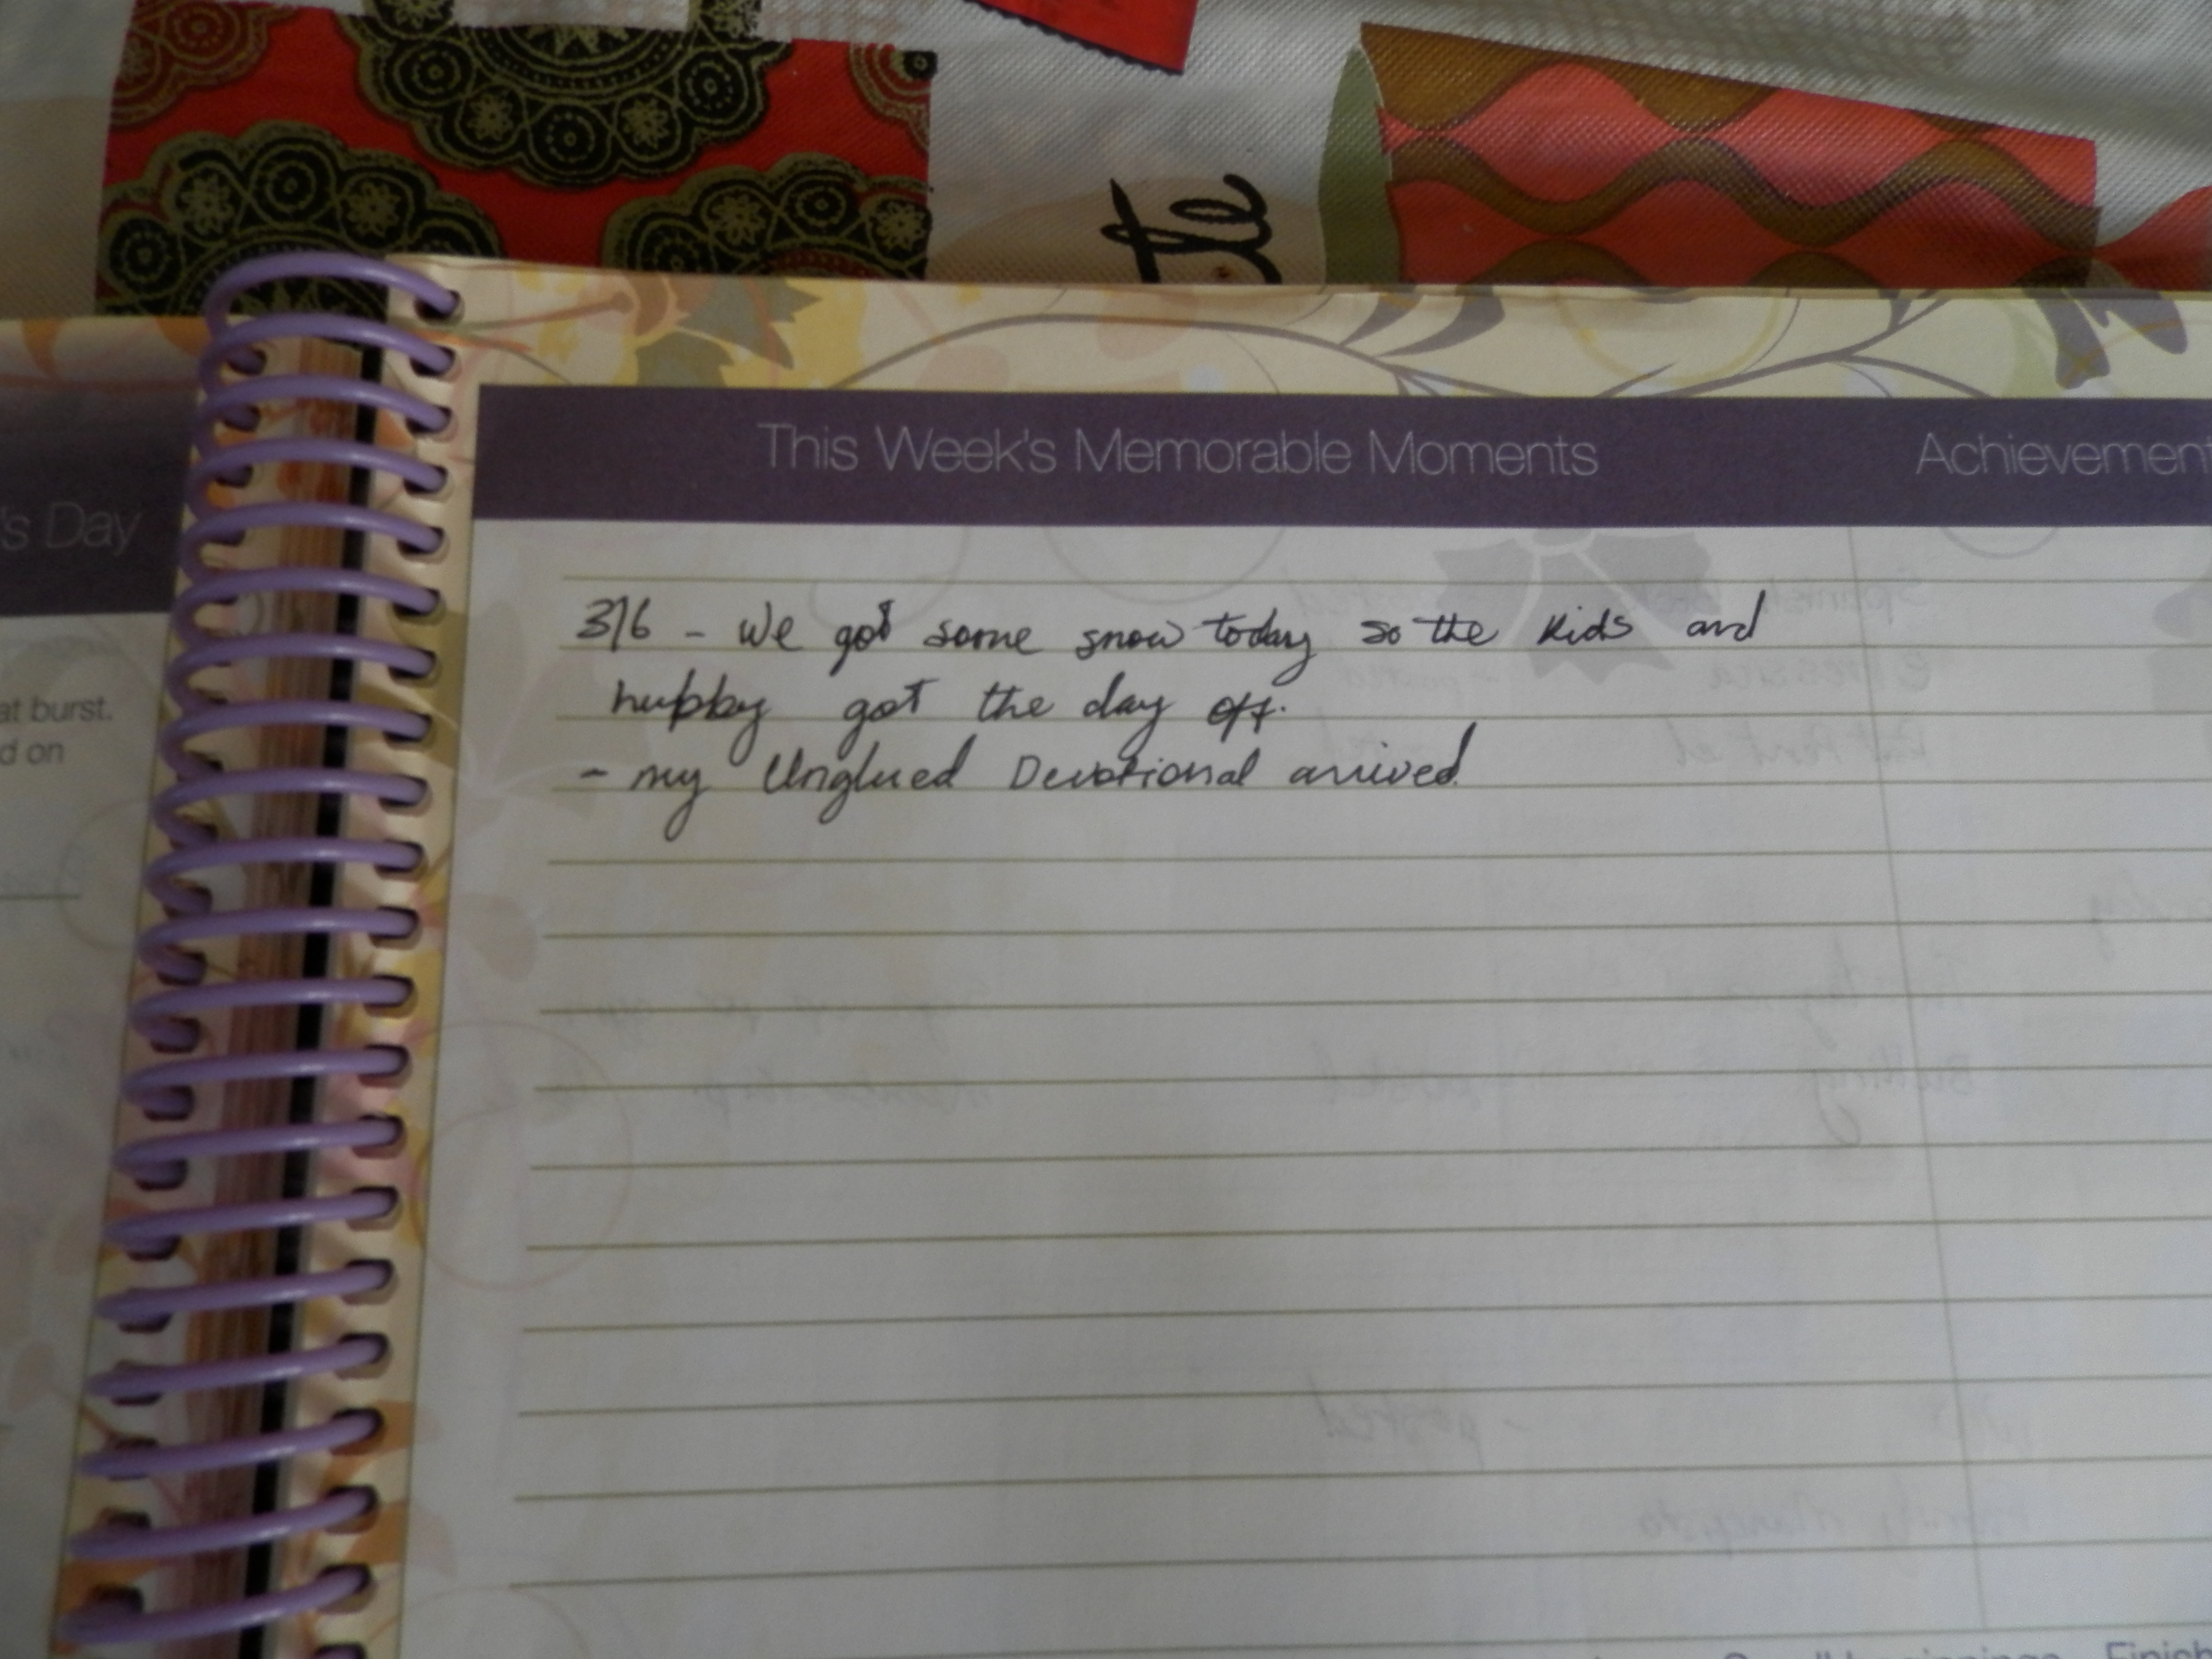 te
This Week's Memorable Moments
Achievement
's Day
at burst.
d on
3/6 - We got some snow today so the kids and
hubby got the day off.
- my Unglued Devotional arrived.
- posted